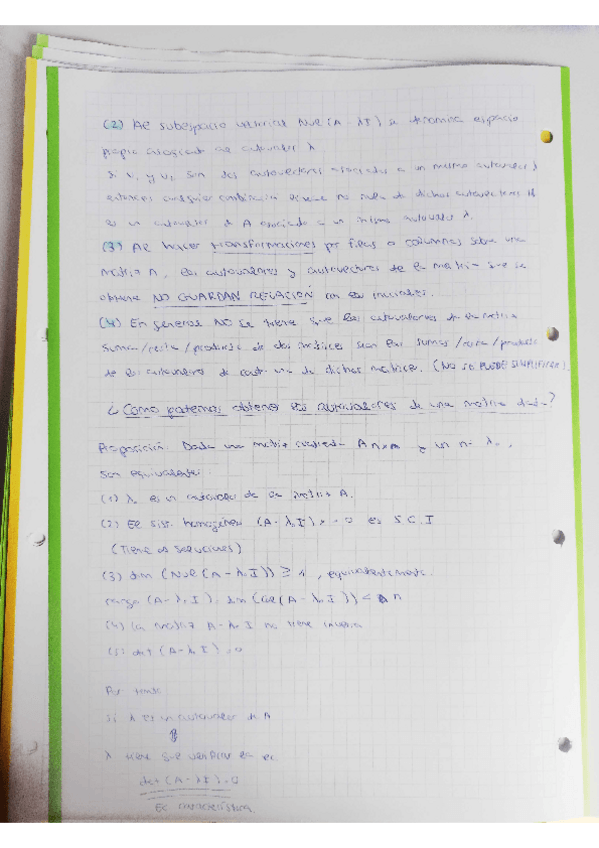 (2) Al subespacio vectorial Nuc(A - λI) se denomina espacio
propio asociado al autovalor λ
Si v₁ y v₂ son dos autovectores asociados a un mismo autovalor λ
entonces cualquier combinación lineal no nula de dichos autovectores
es un autovector de A asociado a un mismo autovalor λ.
(3) Al hacer transformaciones por filas o columnas sobre una
matriz A, los autovalores y autovectores de la matriz que se
obtiene NO GUARDAN RELACIÓN con los iniciales.
(4) En general NO se tiene que los autovalores de la matriz
suma/resta/producto de dos matrices sean las sumas/resta/producto
de los autovalores de cada una de dichas matrices. (NO SE PUEDE SIMPLIFICAR).
¿Como podemos obtener los autovalores de una matriz dada?
Proposición. Dada una matriz cuadrada Anxn y un nº λ₀,
son equivalentes:
(1) λ₀ es un autovalor de la matriz A.
(2) El sist. homogéneo (A - λ₀I)x = 0 es S.C.I
(Tiene ∞ soluciones)
(3) dim (Nuc(A - λ₀I)) ≥ 1, equivalentemente.
rango (A - λ₀I) = dim (Col(A - λ₀I)) < n
(4) La matriz A - λ₀I no tiene inversa
(5) det (A - λ₀I) = 0
Por tanto
Si λ es un autovalor de A
⇕
λ tiene que verificar la ec
det (A - λI) = 0
Ec característica